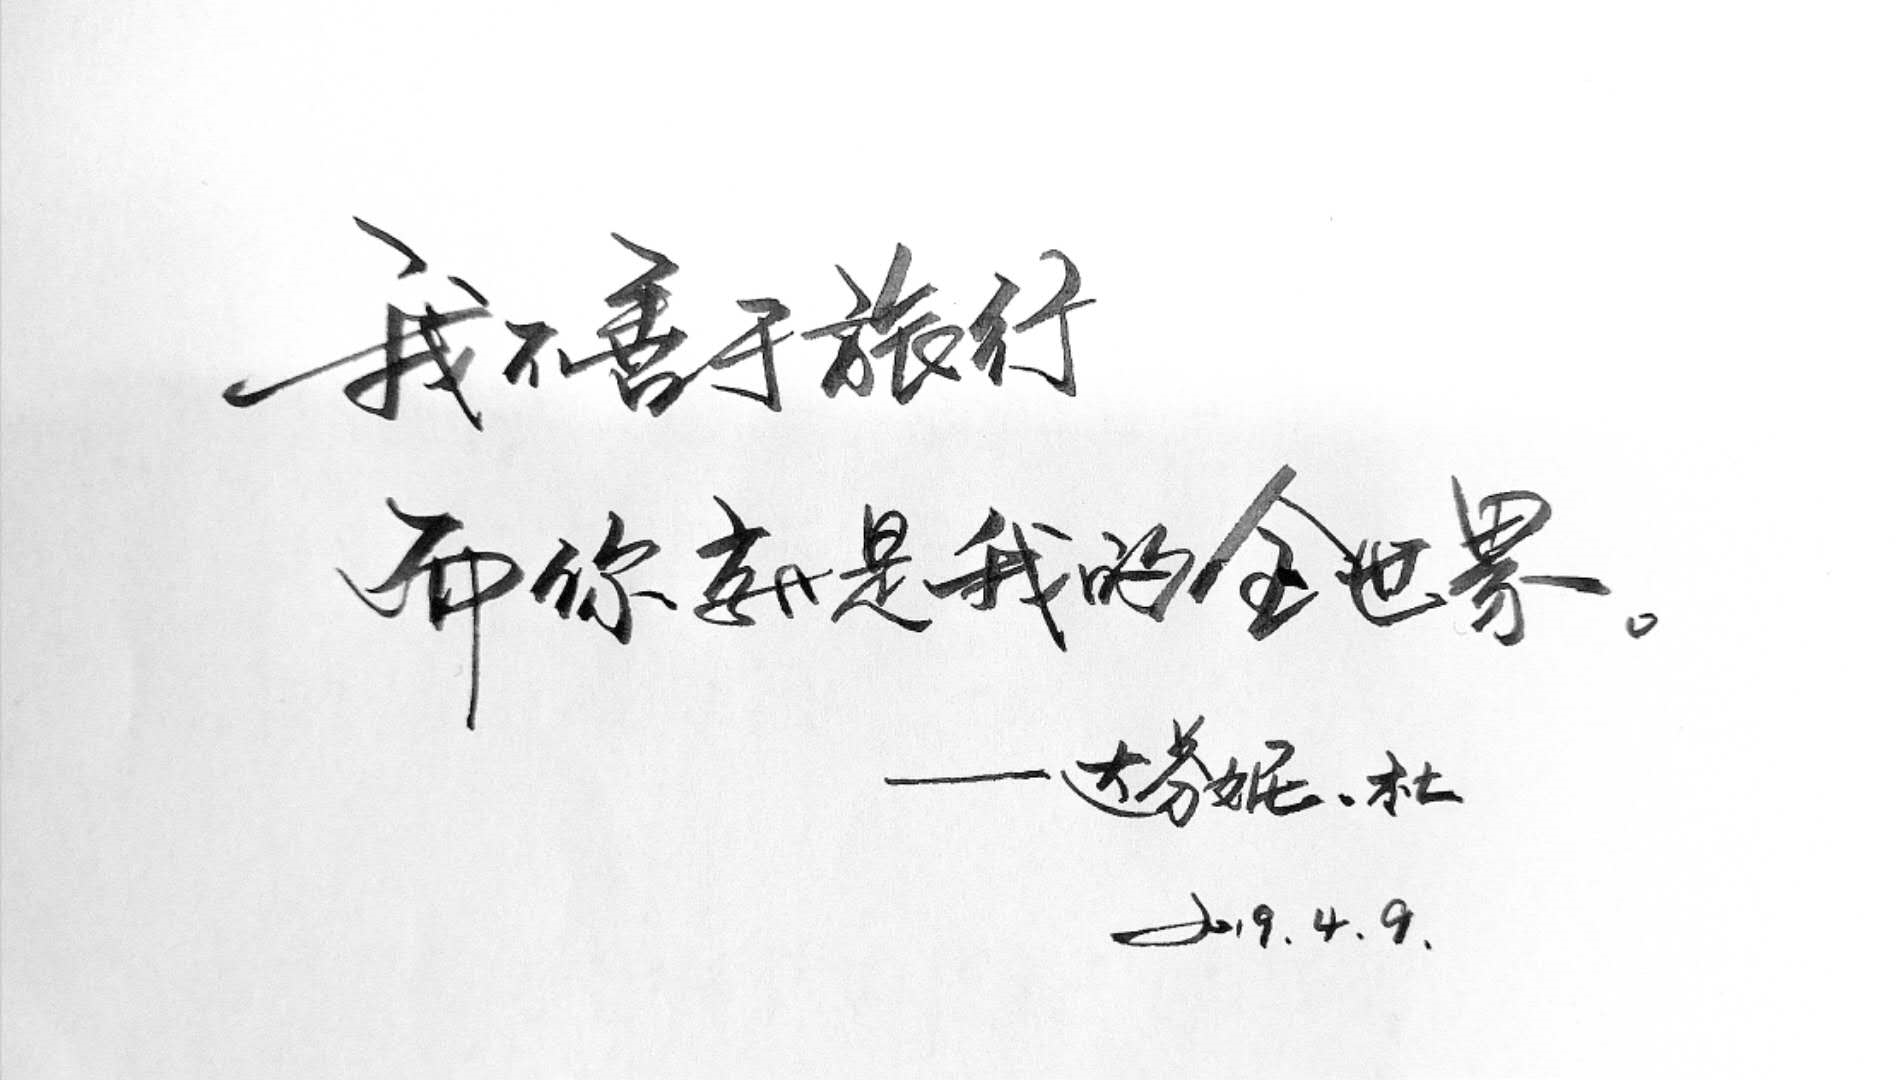 我不善于旅行
而你就是我的全世界。
——达芬妮·杜
2019.4.9.